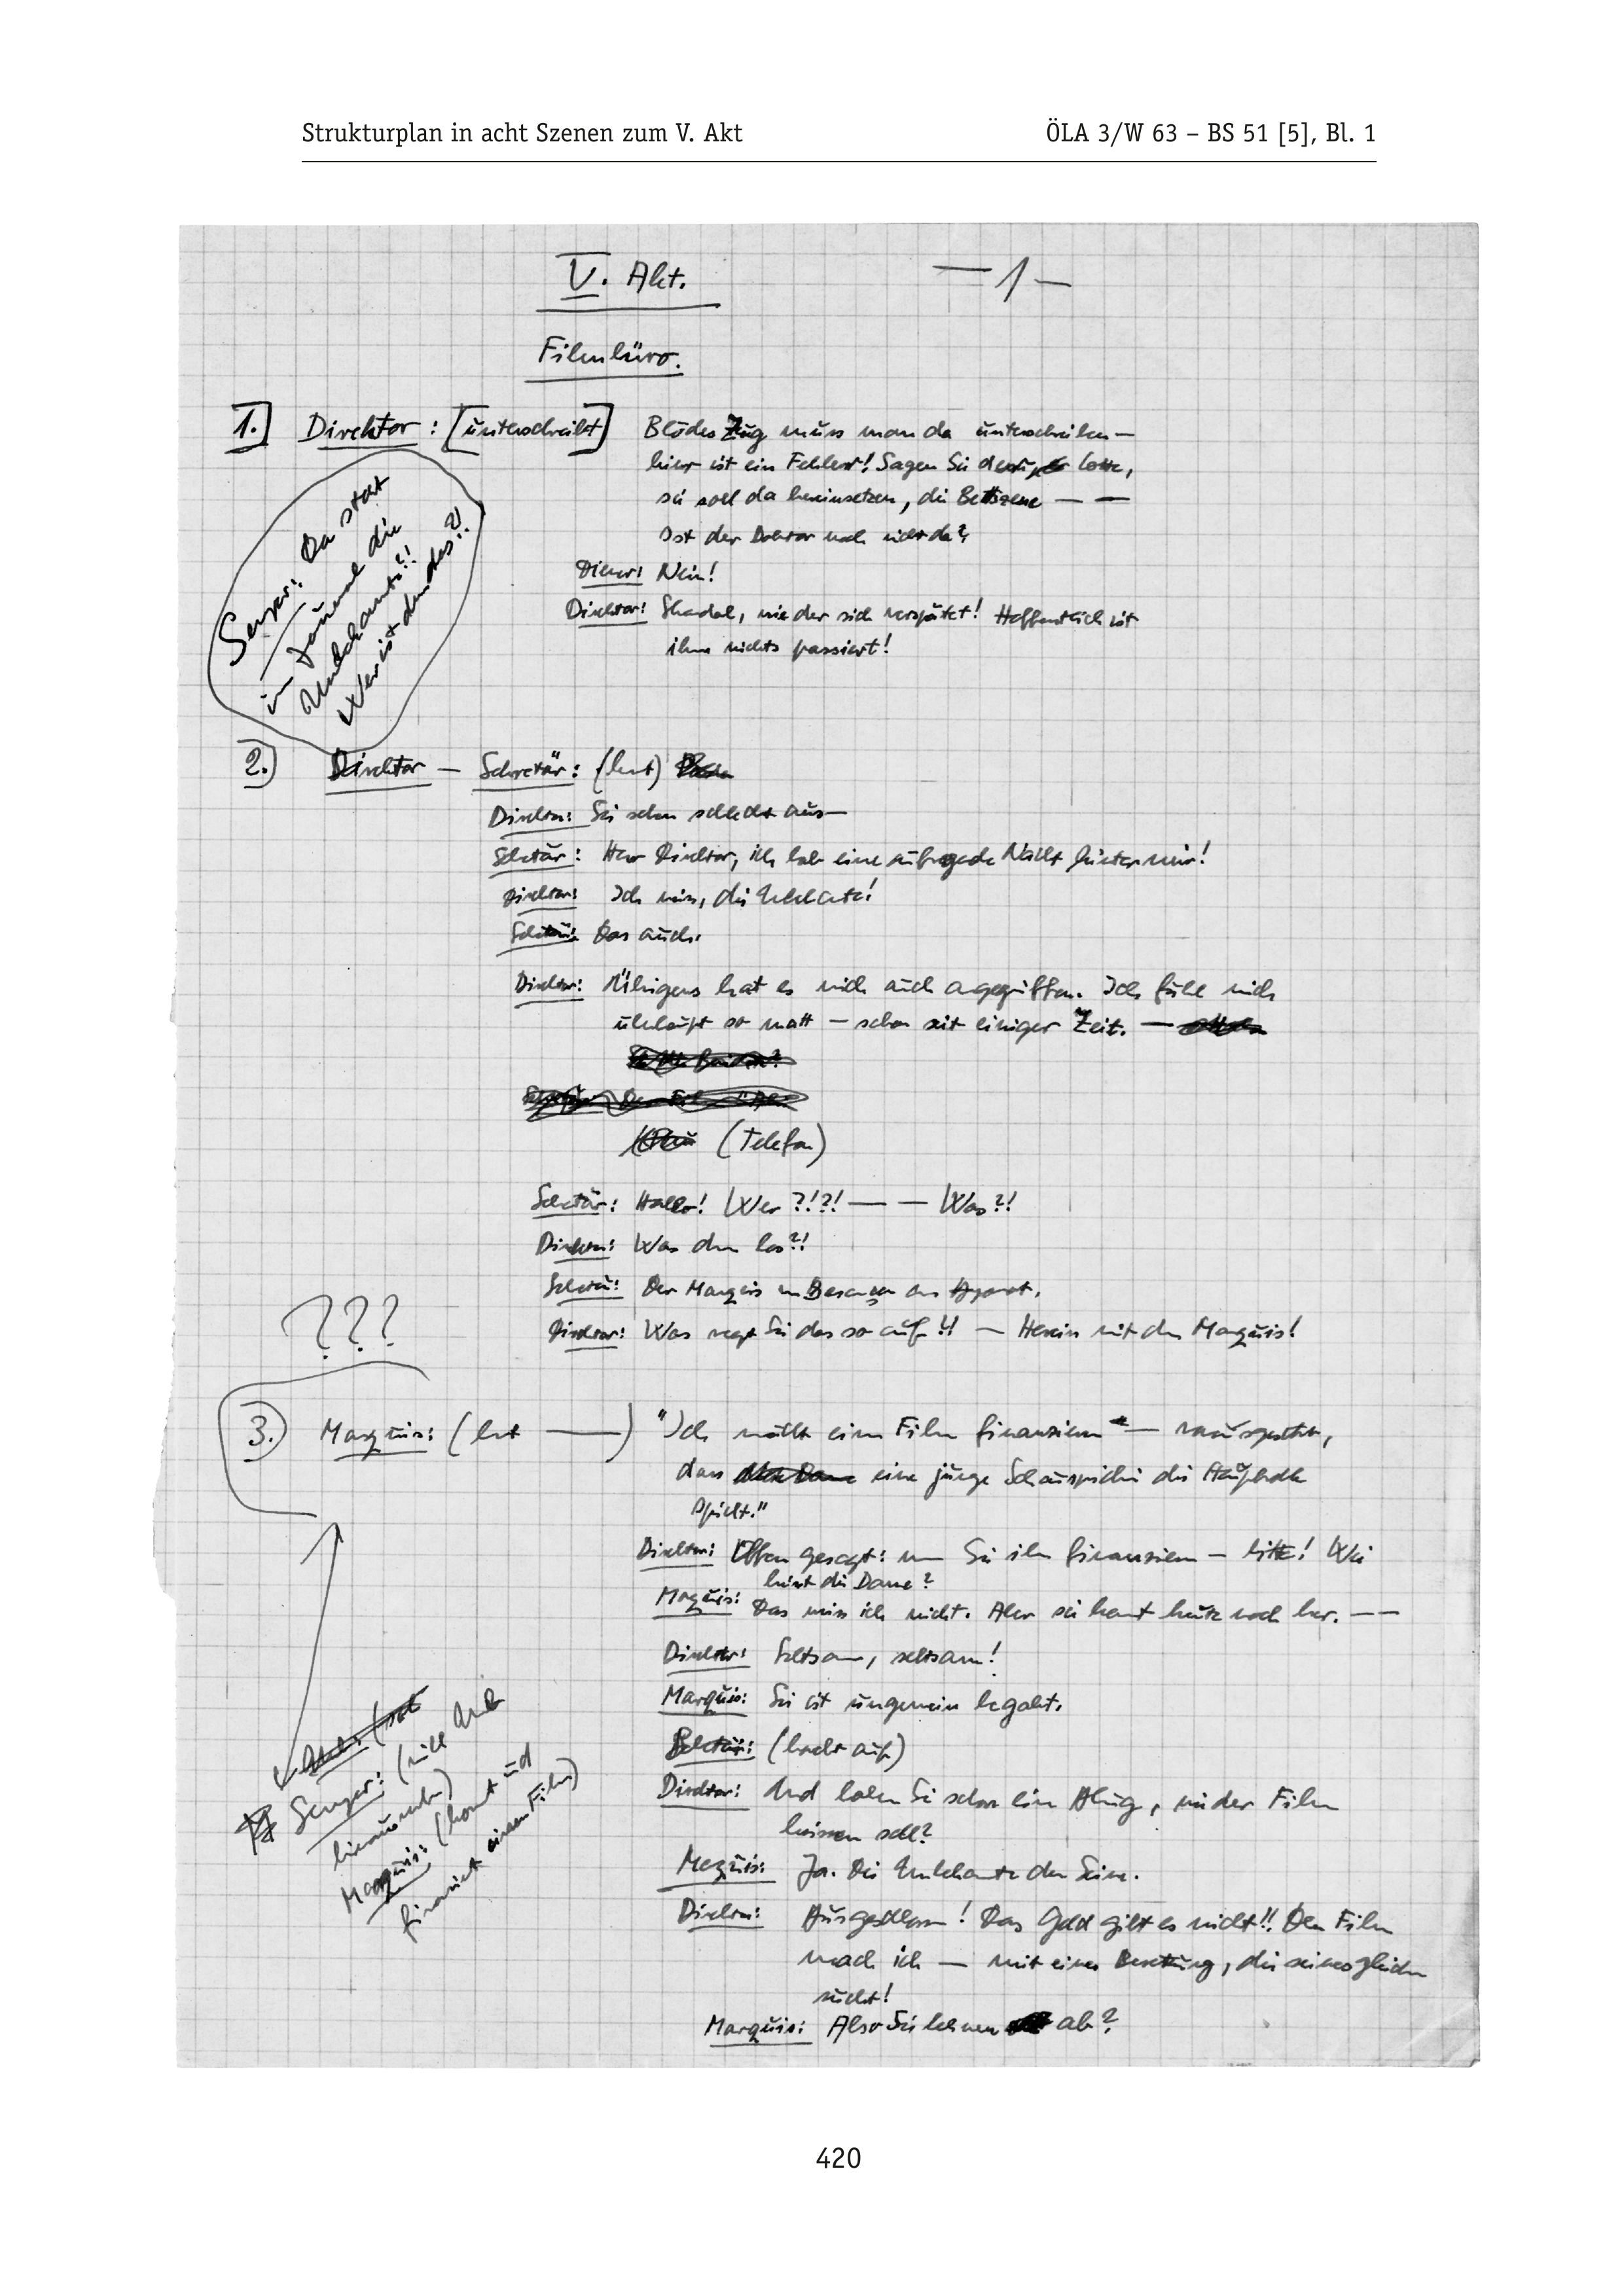 Strukturplan in acht Szenen zum V. Akt
ÖLA 3/W 63 – BS 51 [5], Bl. 1
V. Akt.
— 1 —
Filmbüro.
1.] Direktor: [unterschreibt] Blödes Zeug muss man da unterschreiben —
hier ist ein Fehler! Sagen Sie der Lotte,
sie soll da hereinsetzen, die Bettszene — —
Ist der Doktor noch nicht da?
Diener: Nein!
Direktor: Skandal, wie der sich verspätet! Hoffentlich ist
ihm nichts passiert!
Da steht
in die
Unbekannte?!
Wer ist denn das?!
2.) Direktor — Sekretär: (kommt)
Direktor: Sie sehen schlecht aus —
Sekretär: Herr Direktor, ich hab eine aufregende Nacht hinter mir!
Direktor: Ich weiss, die Unbekannte!
Sekretär: Das auch.
Direktor: Übrigens hat es mich auch angegriffen. Ich fühl mich
überhaupt so matt — schon seit einiger Zeit. —
(Telefon)
Sekretär: Hallo! Wer?!?! — — Was?!
Direktor: Was denn los?!
Sekretär: Der Marquis von am Apparat.
Direktor: Was regt Sie das so auf?! — Herein mit dem Marquis!
???
3.) Marquis: (kommt ——) "Ich möcht einen Film finanzieren — vorausgesetzt,
dass eine junge Schauspielerin die Hauptrolle
spielt."
Direktor: Offen gesagt: wenn Sie ihn finanzieren — bitte! Wie
heisst die Dame?
Marquis: Das weiss ich nicht. Aber sie kommt heute noch her. — —
Direktor: Seltsam, seltsam!
Marquis: Sie ist ungemein begabt.
Sekretär: (lacht auf)
Direktor: Und haben Sie schon eine Ahnung, wie der Film
heissen soll?
Marquis: Ja. Die Unbekannte der Seine.
Direktor: Ausgeschlossen! Das Geld gibt es nicht!! Den Film
mach ich — mit einer Besetzung, die seinesgleichen
sucht!
Marquis: Also Sie lehnen ab?
(will
Marquis: (kommt und
finanziert einen Film)
420